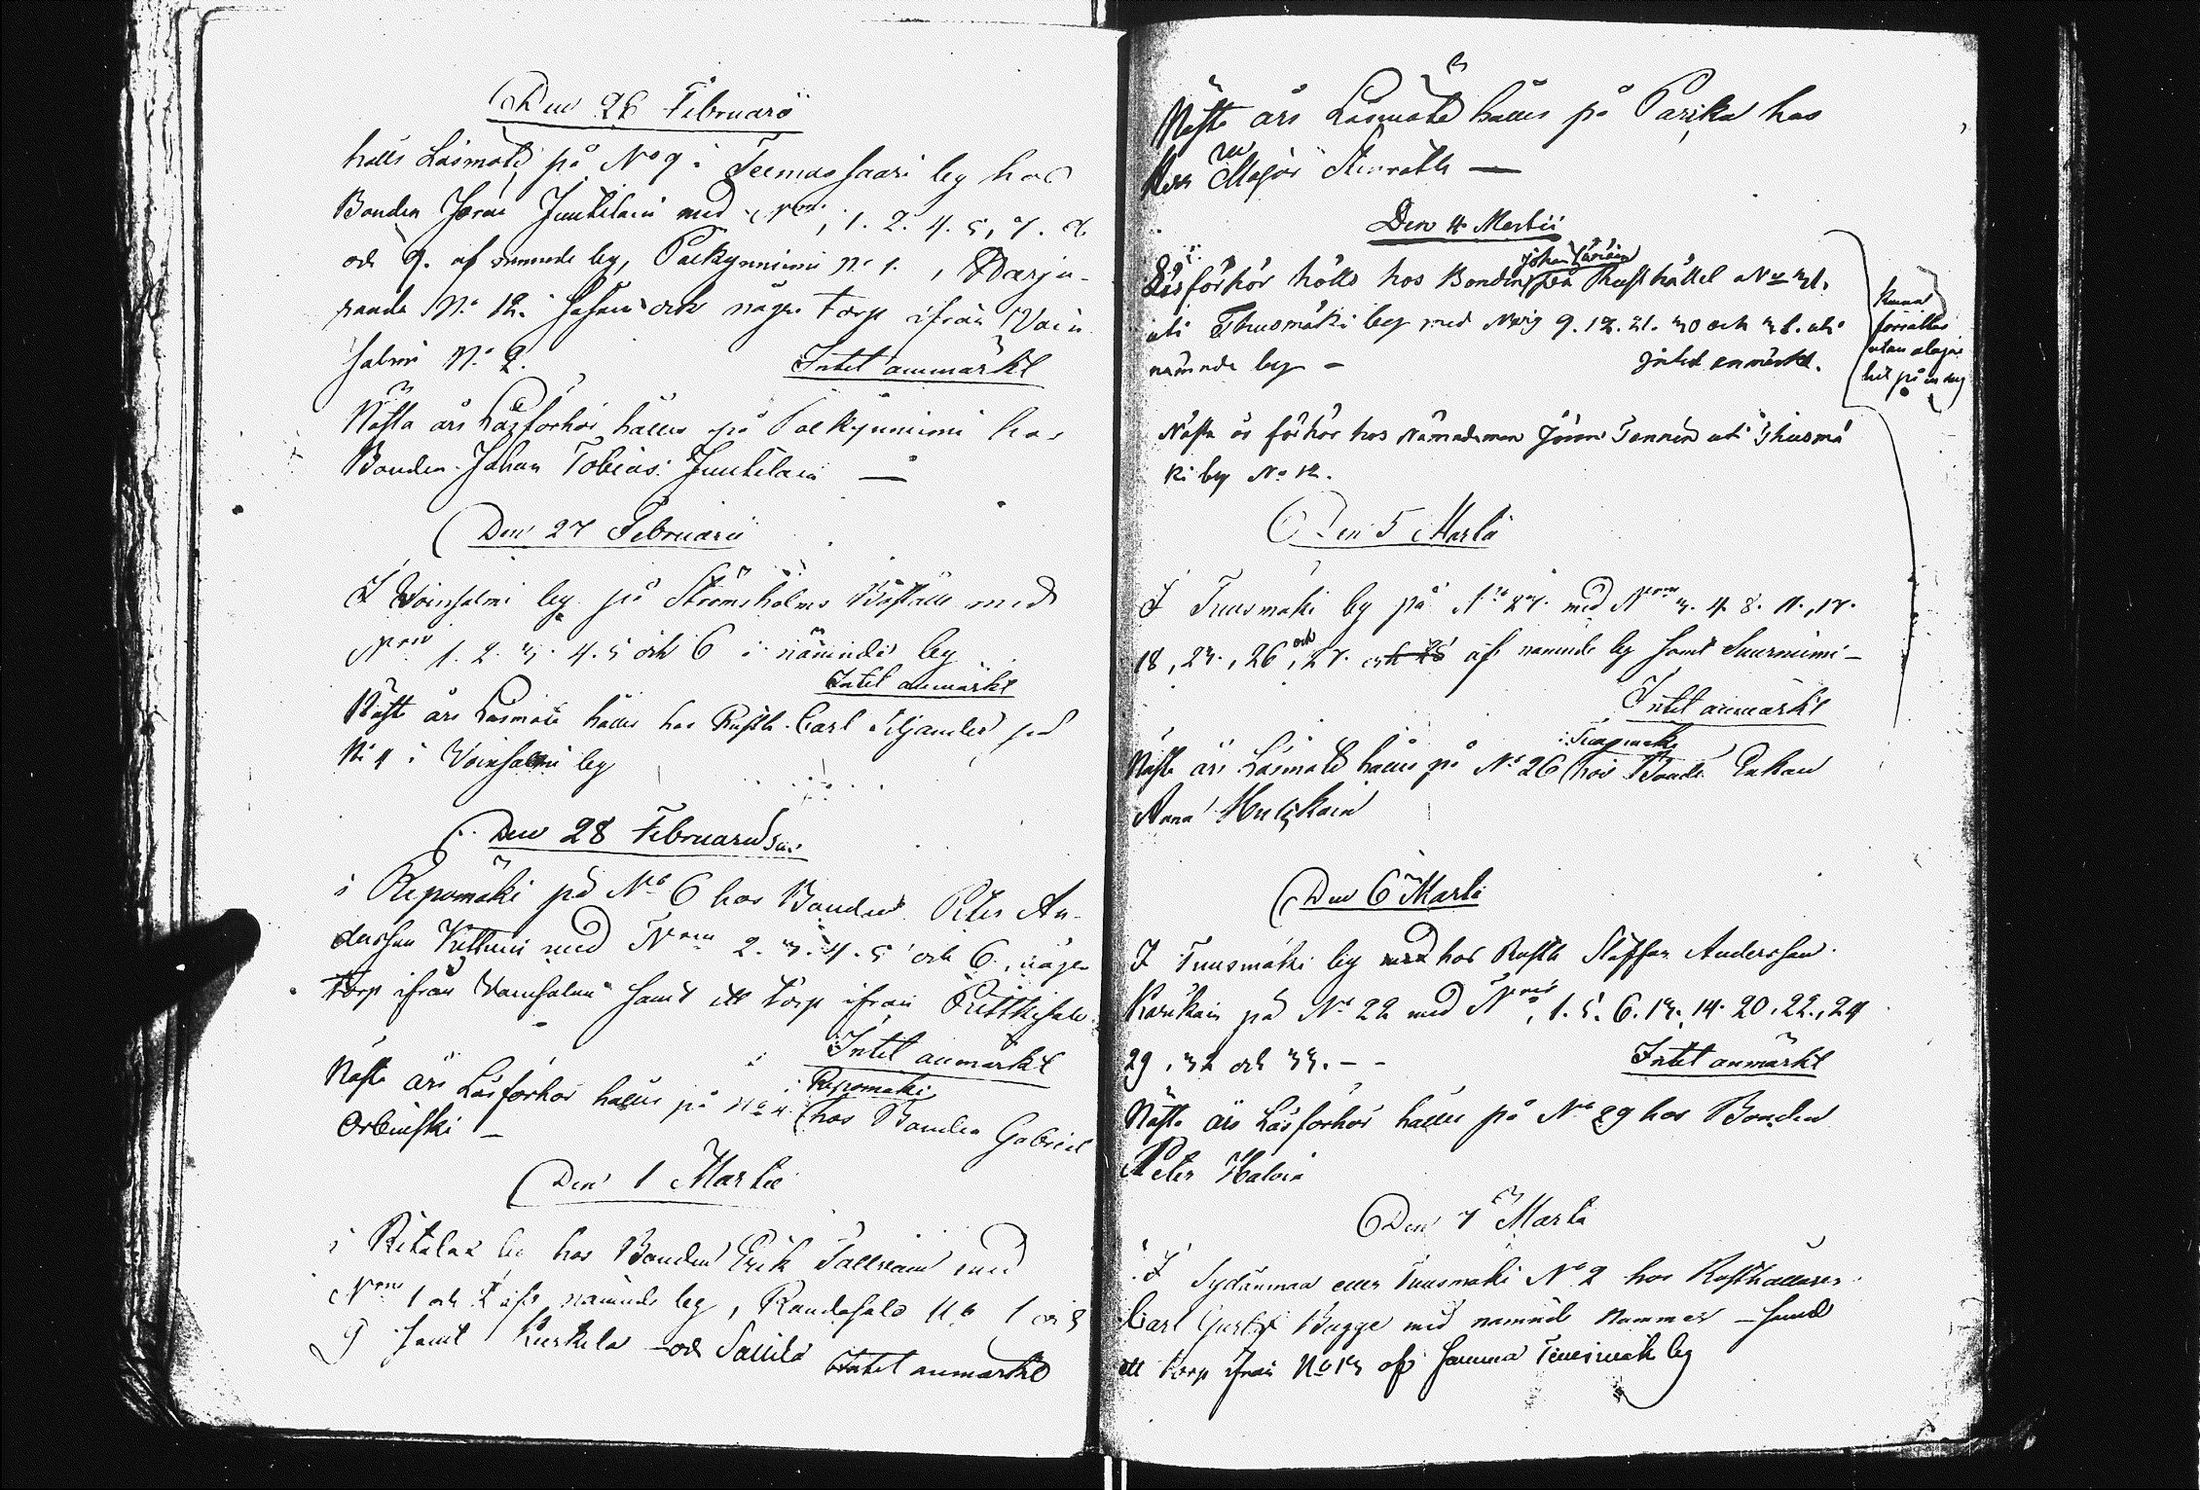 Den 26 Februarii
hålls Läsmöte på No 9 i Teemassaari by hos
Bonden Jöran Juutilain med Nris, 1. 2. 4. 5, 7. 8
och 9. af nämnde by, Paekynniemi No 1.,
randa No 12. Sahain och några torp ifrån Vain
salmi No 2.
Intet anmärkt
Nästa års Läseförhör hålles på Paekynniemi hos
Bonden Johan Tobias Juutilain —
Den 27 Februarii
I Voinsalmi by på Strömsholms Boställe med
Nris 1. 2. 3. 4. 5 och 6 i nämnde by
Intet anmärkt
Näste års Läsmöte hålles hos Rusth. Carl Siljander på
No 4 i Voinsalmi by
Den 28 Februarii
i Repomäki på No 6 hos Bonden Peter An-
dersson Kettuin med Nris 2. 3. 4. 5 och 6, några
torp ifrån Vainsalmi samt ett torp ifrån
Intet anmärkt
Näste års Läsförhör hålles på No 4. i Repomäki hos Bonden Gabriel
Orbinski —
Den 1 Martii
i Ritala by hos Bonden Erik Tallvain med
Nris 1 och 2 af nämnde by, Randasalo No 1 och
9 samt Kurkela och Saukila
Intet anmärkt
Näste års Läsmöte hålles på Parika hos
Herr Major Stenroth —
Den 4 Martii
Läsförhör hölls hos Bonden Johan på Rusthållet No 31.
uti Thusmäki by med Nris 9. 12. 21. 30 och 36. uti
nämnde by —
Intet anmärkt.
Kunna
förrättas
utan olägen
het på en dag
Nästa år förhör hos Nämndeman Jöran Tannin uti Thusmä
ki by No 12.
Den 5 Martii
I Tuusmäki by på No 27. med Nris 3. 4. 8. 11., 17.
18, 23., 26, och 27. och 28 af nämnde by samt Suurniemi —
Intet anmärkt
Näste års Läsmöte hålles på No 26 i Tuusmäki hos Bonde Enkan
Anna Hulkkoin
Den 6 Martii
I Tuusmäki by med hos Rusth Staffan Andersson
Karikain på No 22 med Nris, 1. 5. 6. 13. 14. 20. 22., 24
29, 32 och 33. — -
Intet anmärkt
Näste års Läsförhör hålles på No 29 hos Bonden
Peter Haloin
Den 7 Martii
I Sydänmaa eller Tuusmäki No 2 hos Rusthållaren
Carl Gustaf Bugge med nämnde Nummer — samt
ett torp ifrån No 13 af samma Tuusmäki by